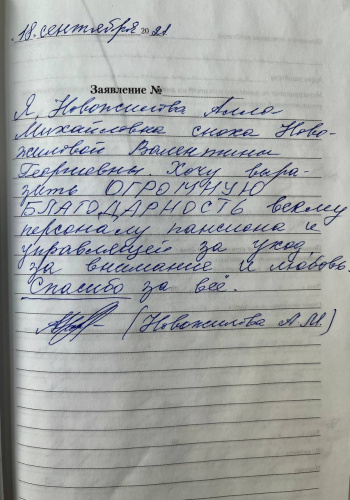 18. сентября 2021
Заявление №
Я, Новожилова Алла
Михайловна сноха Ново-
жиловой Валентины
Георгиевны. Хочу выра-
зить ОГРОМНУЮ
БЛАГОДАРНОСТЬ всему
персоналу пансиона и
управляющей за уход
за внимание и любовь.
Спасибо за всё.
(Новожилова А.М.)